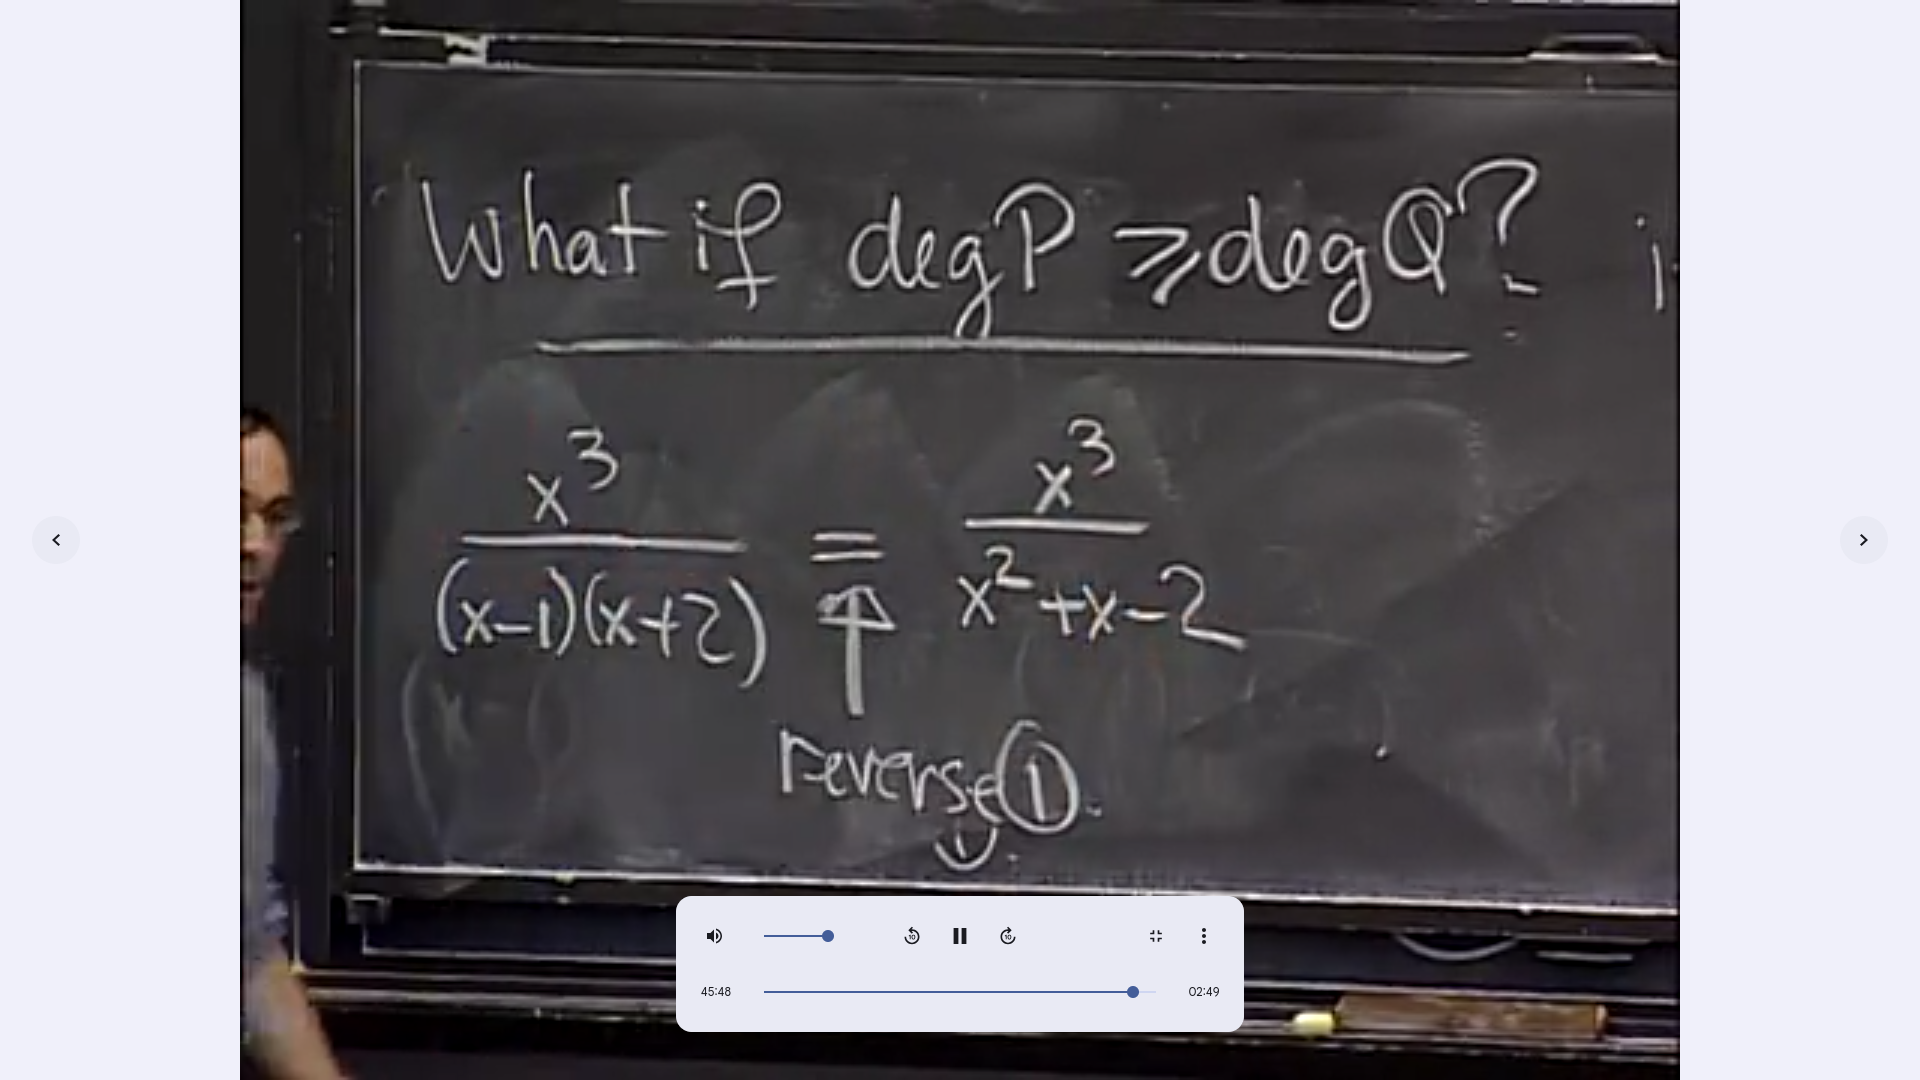 What if deg P ⩾ deg Q?
x³/((x-1)(x+2)) = x³/(x²+x-2)
reverse ①.
10
10
45:48
02:49